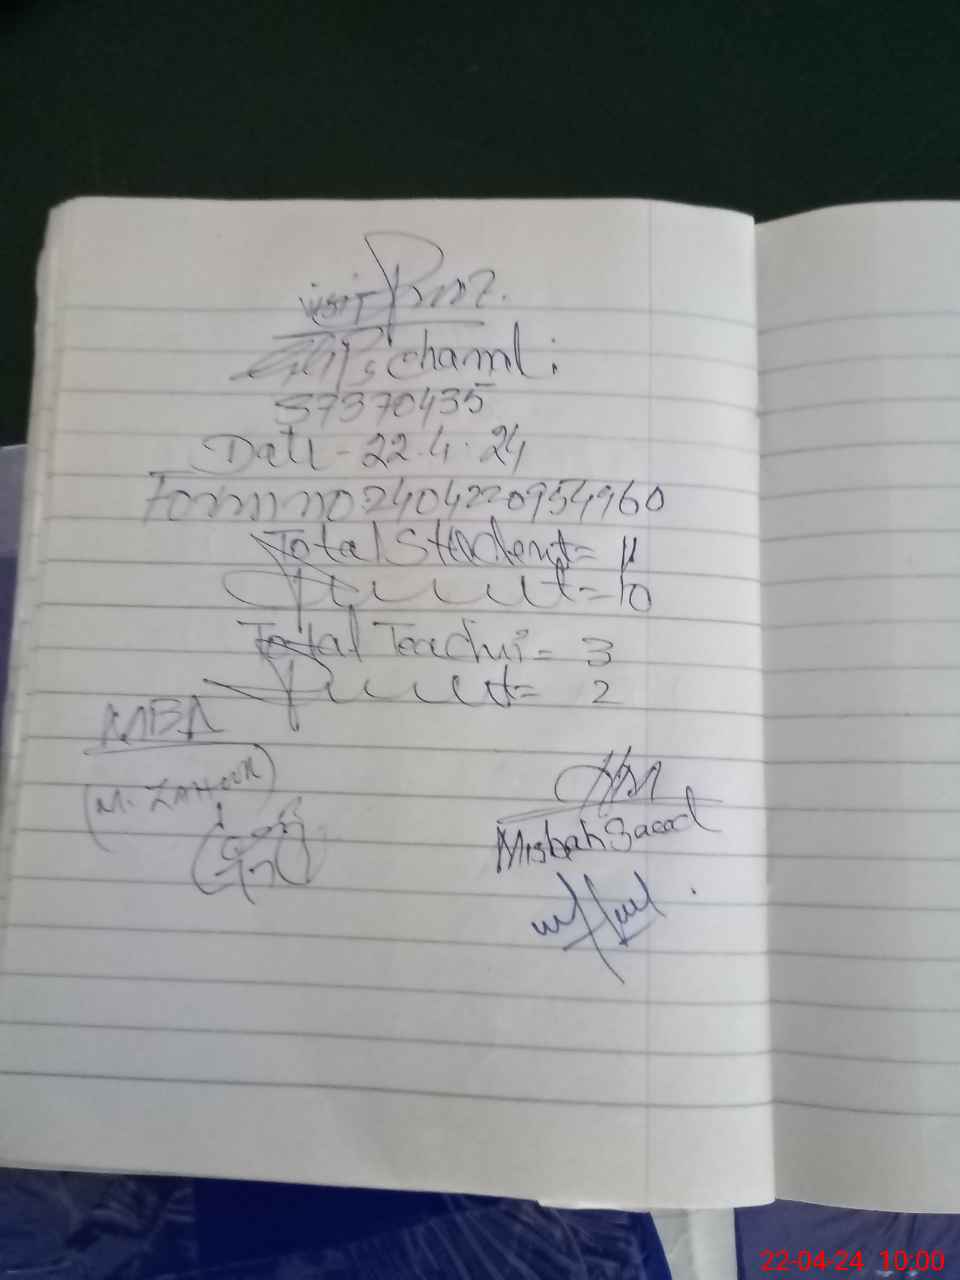 visit Prmz.
GGPS chamli:
37370435
Date - 22.4.24
Form no 2404220954960
Total Student = 11
Present = 10
Total Teacher = 3
Present = 2
MEA
(M. ZAHOOR)
HM
Misbah Saeed
22-04-24 10:00